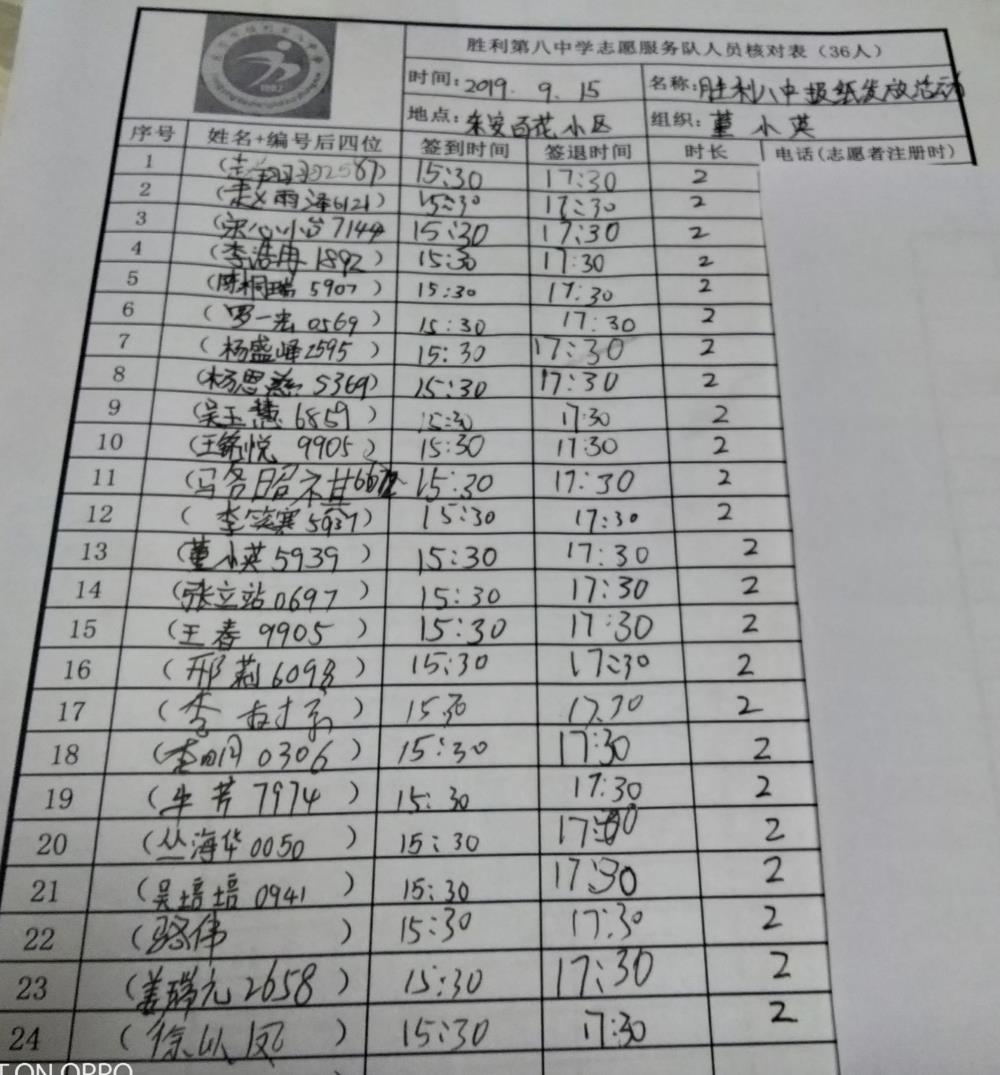 胜利第八中学志愿服务队人员核对表（36人）
时间：2019. 9. 15 名称：胜利八中报纸发放活动
地点：东安百花小区 组织：董小英
序号 姓名+编号后四位 签到时间 签退时间 时长 电话（志愿者注册时）
1 15:30 17:30 2
2 (赵雨泽6121) 15:30 17:30 2
3 7144 15:30 17:30 2
4 (李浩冉 1892) 15:30 17:30 2
5 (陈桐瑞 5907) 15:30 17:30 2
6 (罗一宏 0569) 15:30 17:30 2
7 (杨盛峰2595) 15:30 17:30 2
8 (杨恩慈 5369) 15:30 17:30 2
9 (吴玉慧 6859) 15:30 17:30 2
10 (王铭悦 9905) 15:30 17:30 2
11 15:30 17:30 2
12 (李笑寒5937) 15:30 17:30 2
13 (董小英5939) 15:30 17:30 2
14 (张立站0697) 15:30 17:30 2
15 (王春 9905) 15:30 17:30 2
16 (邢莉6098) 15:30 17:30 2
17 (李 ) 15:30 17:30 2
18 (李明月0306) 15:30 17:30 2
19 (牛芳7974) 15:30 17:30 2
20 (丛海华0050) 15:30 17:30 2
21 (吴培培0941) 15:30 17:30 2
22 (骆伟 ) 15:30 17:30 2
23 (姜瑞元2658) 15:30 17:30 2
24 (徐以凤 ) 15:30 17:30 2
T ON OPPO